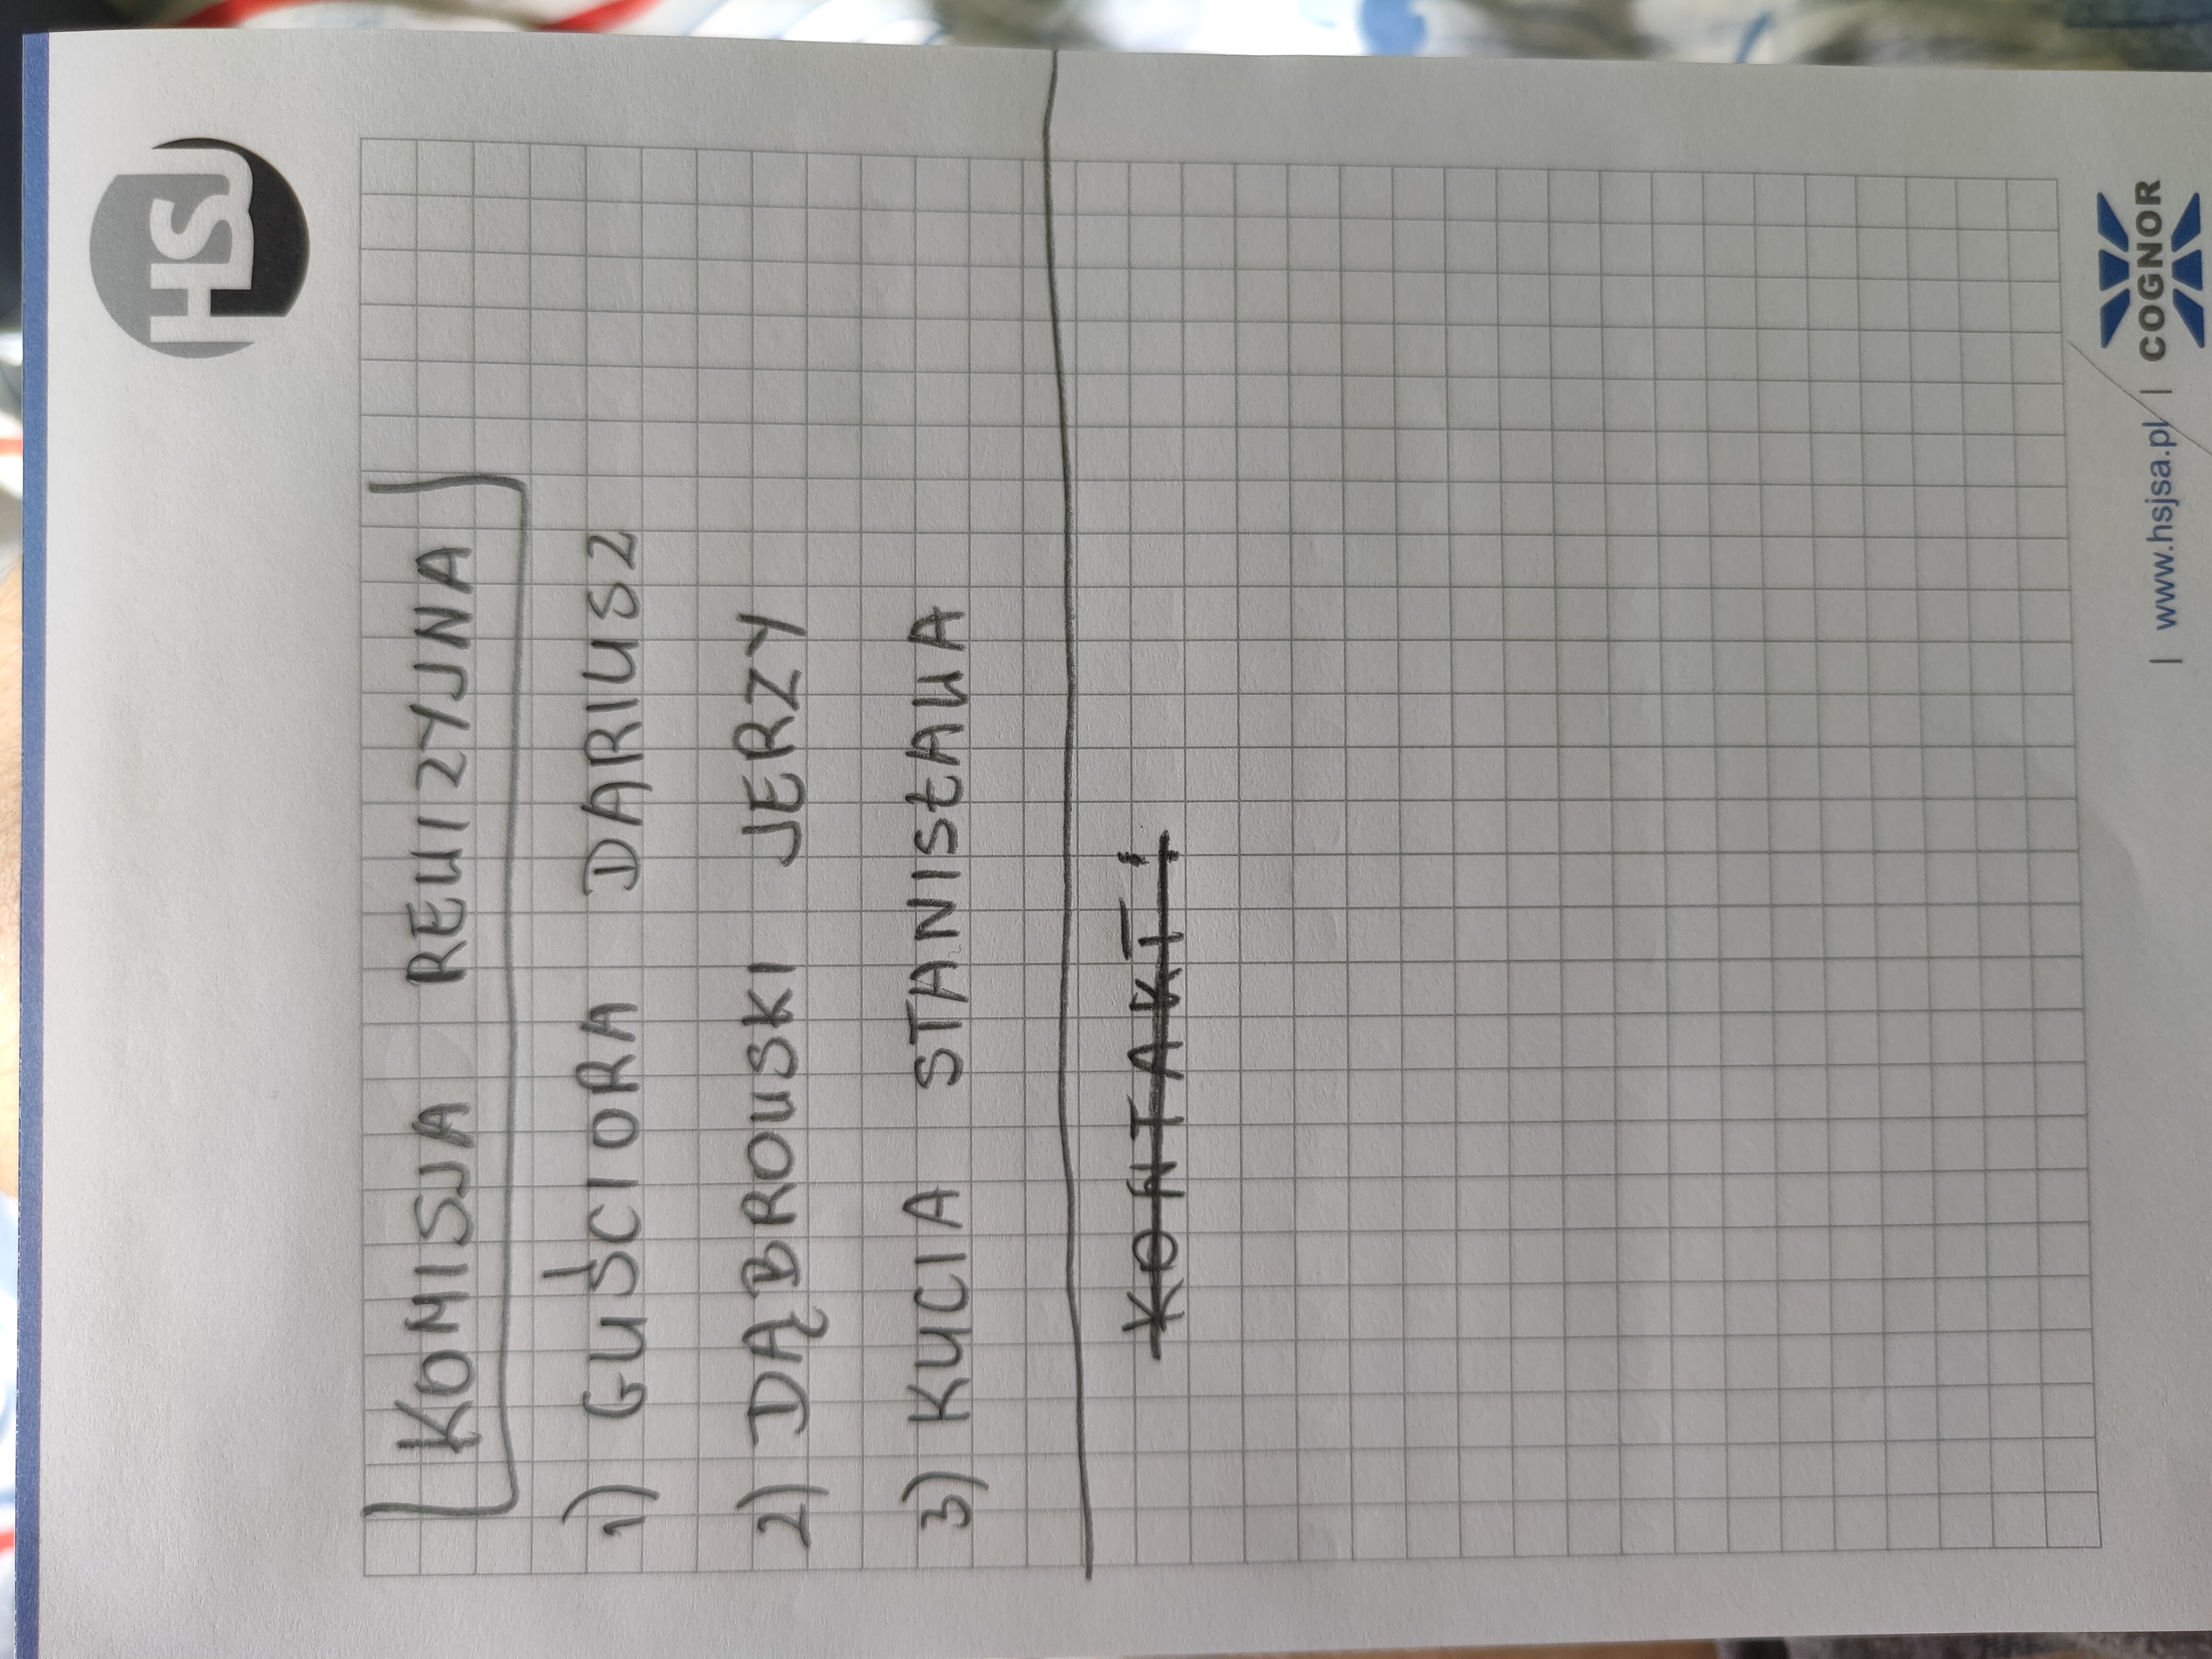 HSJ
KOMISJA REWIZYJNA
1) GUŚCIORA DARIUSZ
2) DĄBROWSKI JERZY
3) KUCIA STANISŁAWA
KONTAKT:
| www.hsjsa.pl | COGNOR